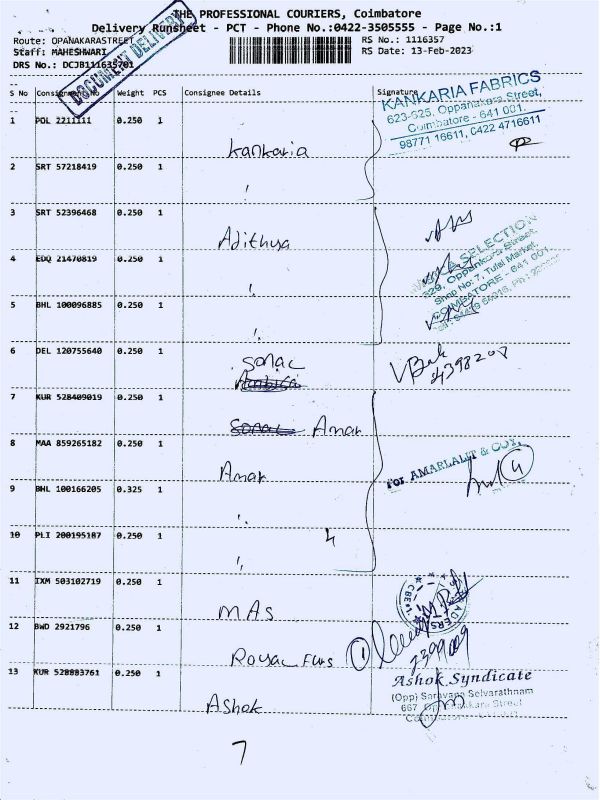 THE PROFESSIONAL COURIERS, Coimbatore
Delivery Runsheet - PCT - Phone No.:0422-3505555 - Page No.:1
Route: OPANAKARASTREET
RS No.: 1116357
Staff: MAHESHWARI
RS Date: 13-Feb-2023
DRS No.: DCJB111635701
DOCUMENT DELIVERY
S No Consignment No Weight PCS Consignee Details Signature
KANKARIA FABRICS
623-625, Oppanakara Street,
Coimbatore - 641 001.
98771 16611, 0422 4716611
1 POL 2211111 0.250 1
Kankaria
2 SRT 57218419 0.250 1
3 SRT 52396468 0.250 1
Adithya
SELECTION
329, Oppankara Street,
Shop No: 7, Tulsi Market,
COIMBATORE - 641 001.
4 EDQ 21470819 0.250 1
5 BHL 100096885 0.250 1
6 DEL 120755640 0.250 1
Sonac
7 KUR 528409019 0.250 1
Aman
8 MAA 859265182 0.250 1
Aman
For AMARLALIT & COY.
4
9 BHL 100166205 0.325 1
10 PLI 200195187 0.250 1
4
11 IXM 503102719 0.250 1
MAS
12 BWD 2921796 0.250 1
Royal Furs 1
13 KUR 528883761 0.250 1
Ashok
Ashok Syndicate
(Opp) Saravana Selvarathnam
667
7